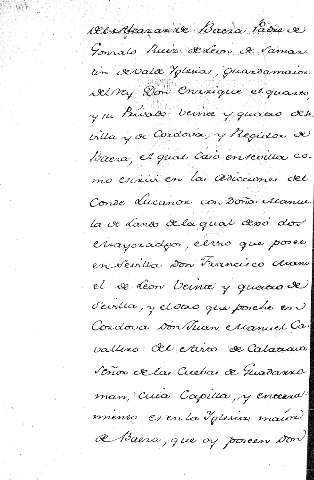 del Alcazar de Baeza, Padre de
Gonzalo Ruiz de Leon de Samar-
tin de Valde Iglesias, Guardamaior
del Rey Don Enrique el quarto,
y su Privado Veinte y quatro de Se-
villa y de Cordova, y Regidor de
Baeza, el qual Casó en Sevilla co-
mo escrivi en las Adicciones del
Conde Lucanor con Doña Manue-
la de Lando de la qual dexó dos
Mayorazgos, el uno que posee
en Sevilla Don Francisco Manu-
el de Leon Veinte y quatro de
Sevilla, y el otro que posehe en
Cordova Don Juan Manuel Ca-
vallero del Avito de Calatrava
Señor de las Cuebas de Guadarro-
man, cuia Capilla, y enterra-
miento es en la Yglesia maior
de Baeza, que oy poseen Don